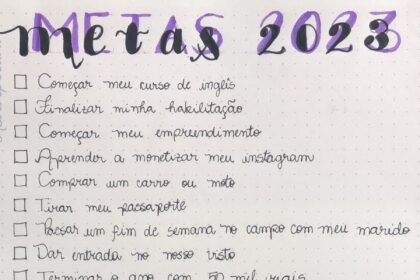 METAS 2023
metas 2023
Começar meu curso de inglês
Finalizar minha habilitação
Começar meu empreendimento
Aprender a monetizar meu instagram
Comprar um carro ou moto
Tirar meu passaporte
Passar um fim de semana no campo com meu marido
Dar entrada no nosso visto
Terminar o ano com 50 mil reais